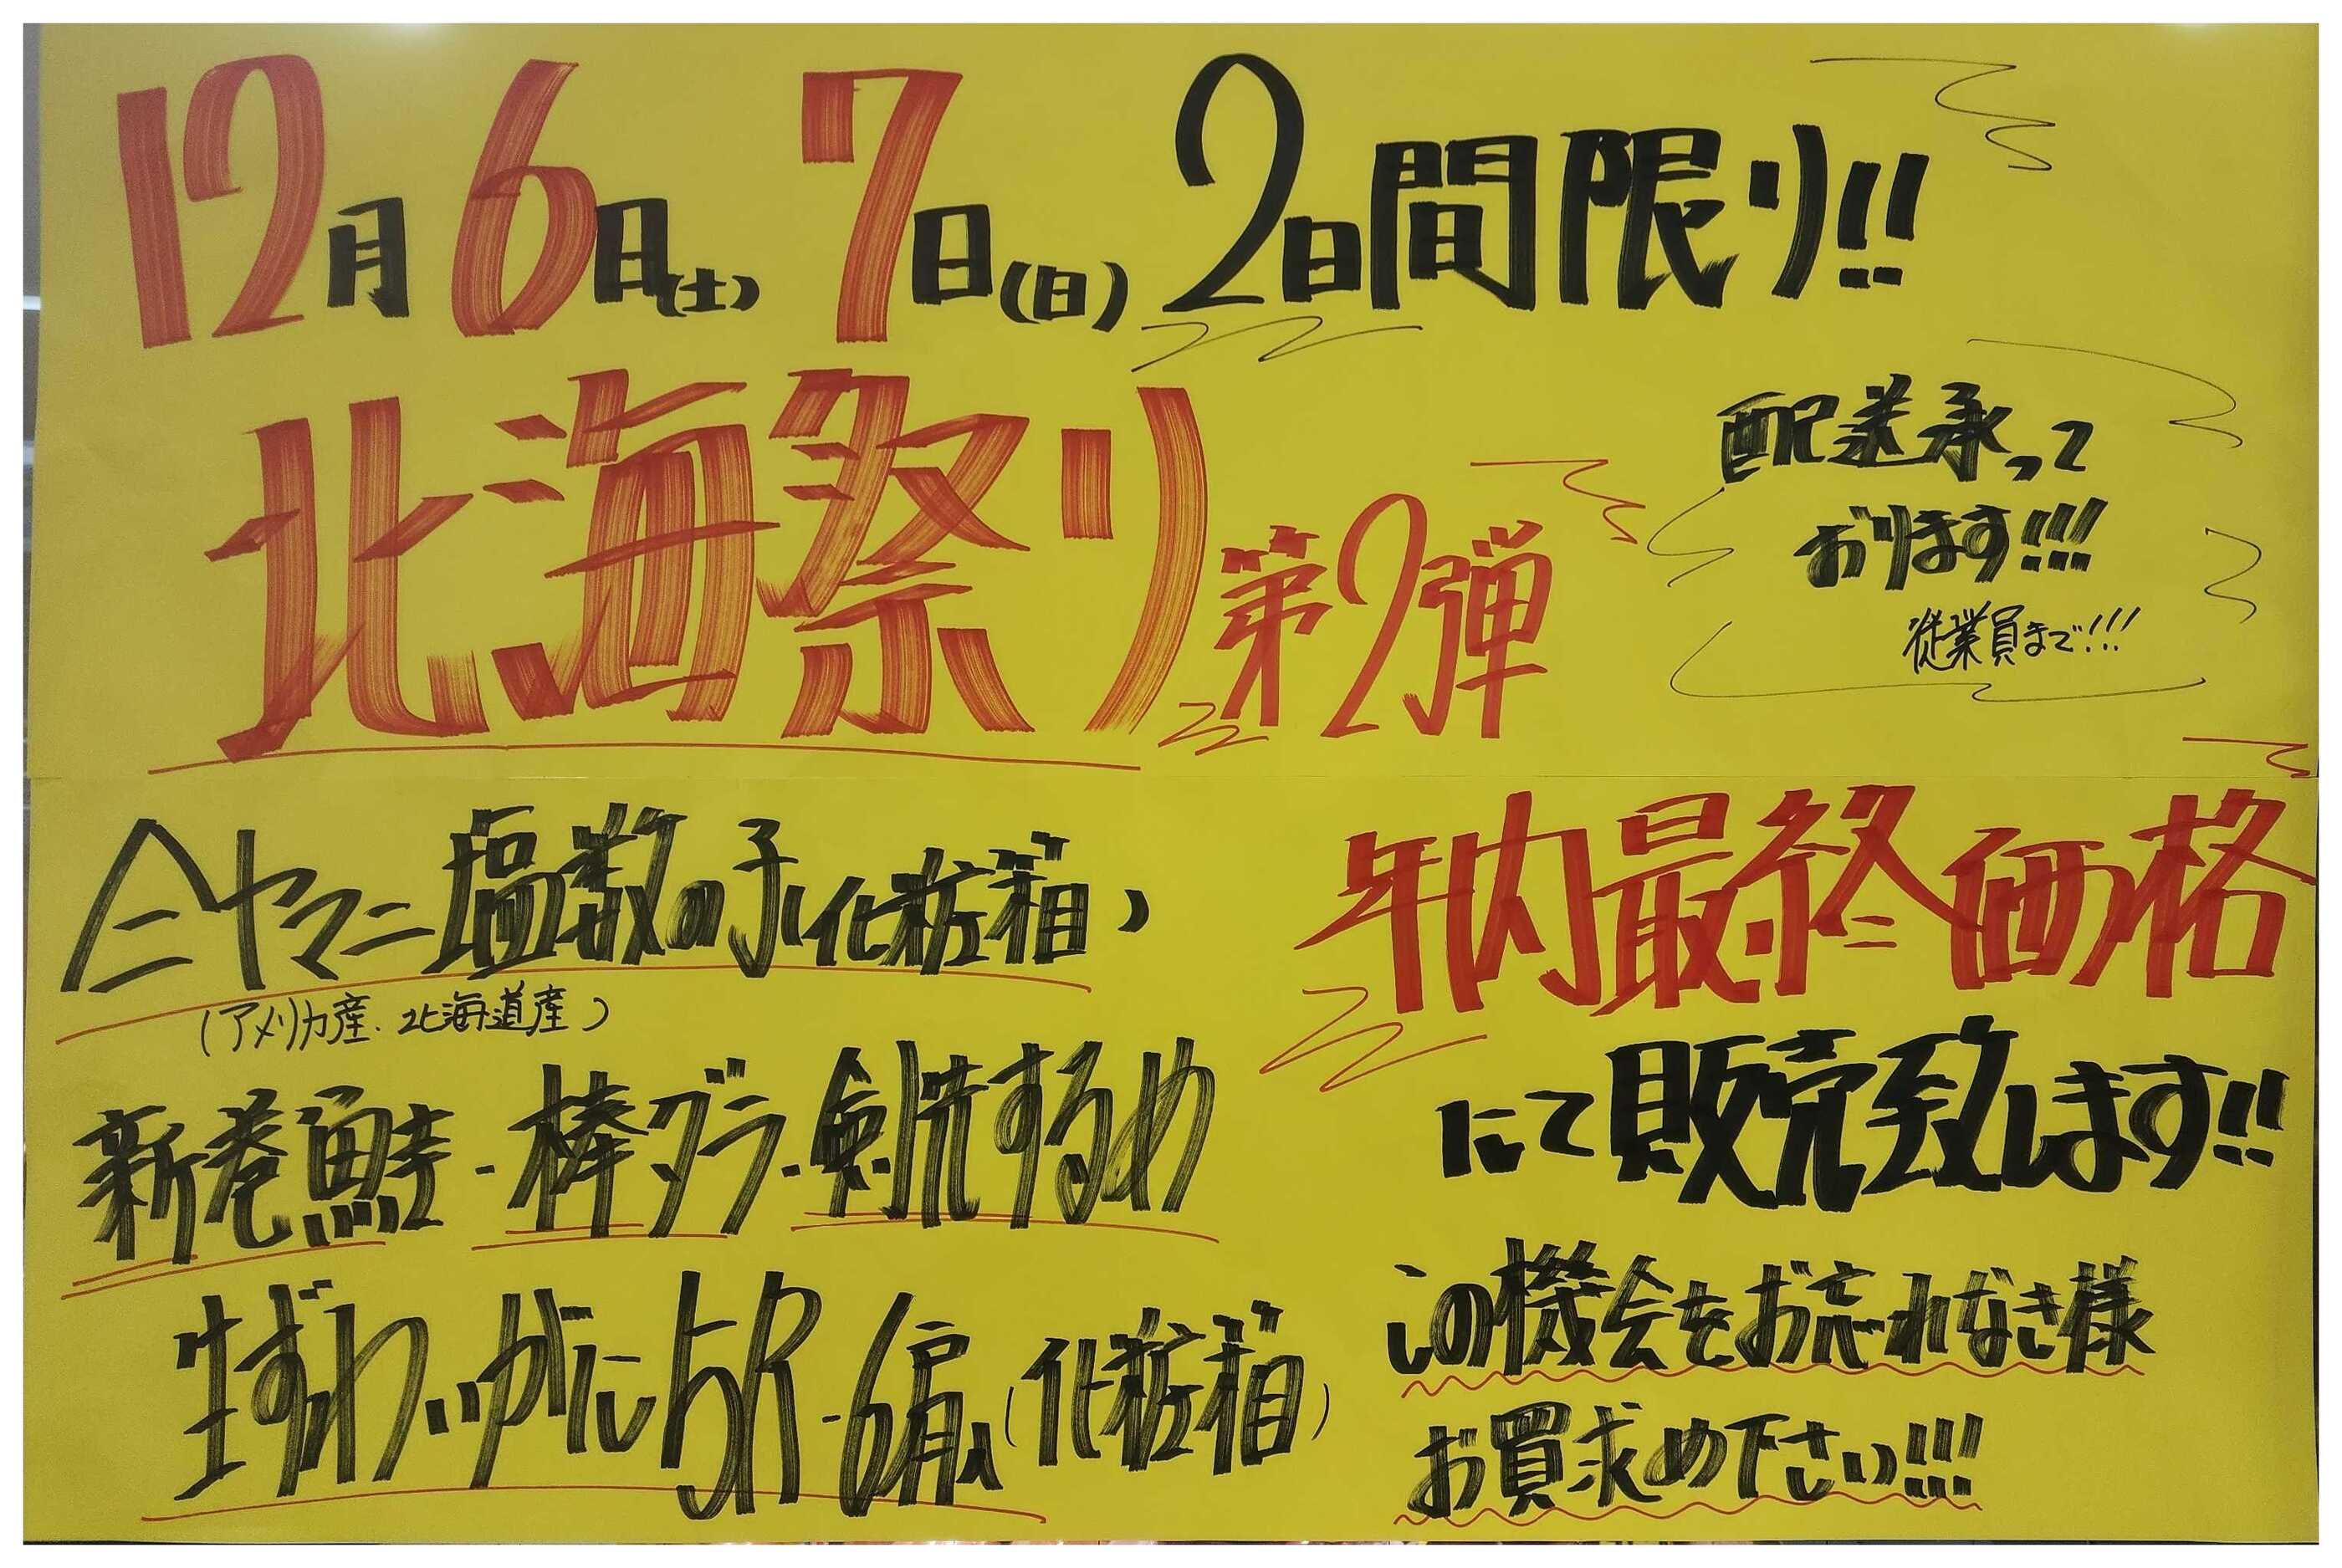 12月6日(土)7日(日)2日間限り!!
北海祭り第2弾
配送承って
おります!!!
従業員まで!!!
ヤマニ塩数の子(化粧箱)
(アメリカ産.北海道産)
新巻鮭・棒ダラ・剣先するめ
生ずわいがに5R-6肩入(化粧箱)
年内最終価格
にて販売致します!!
この機会をお忘れなき様
お買求め下さい!!!